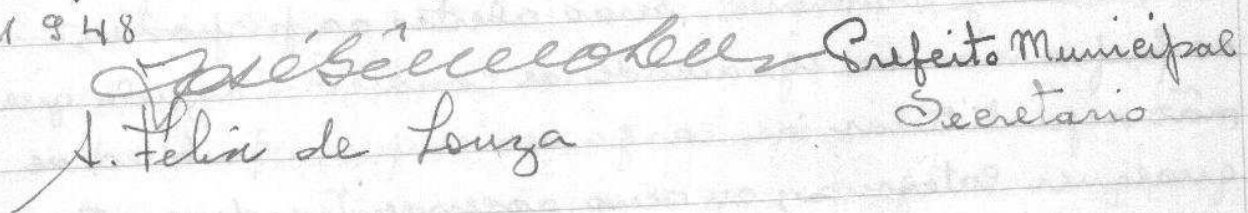 1948
José Prefeito Municipal
A. Felix de Souza Secretario